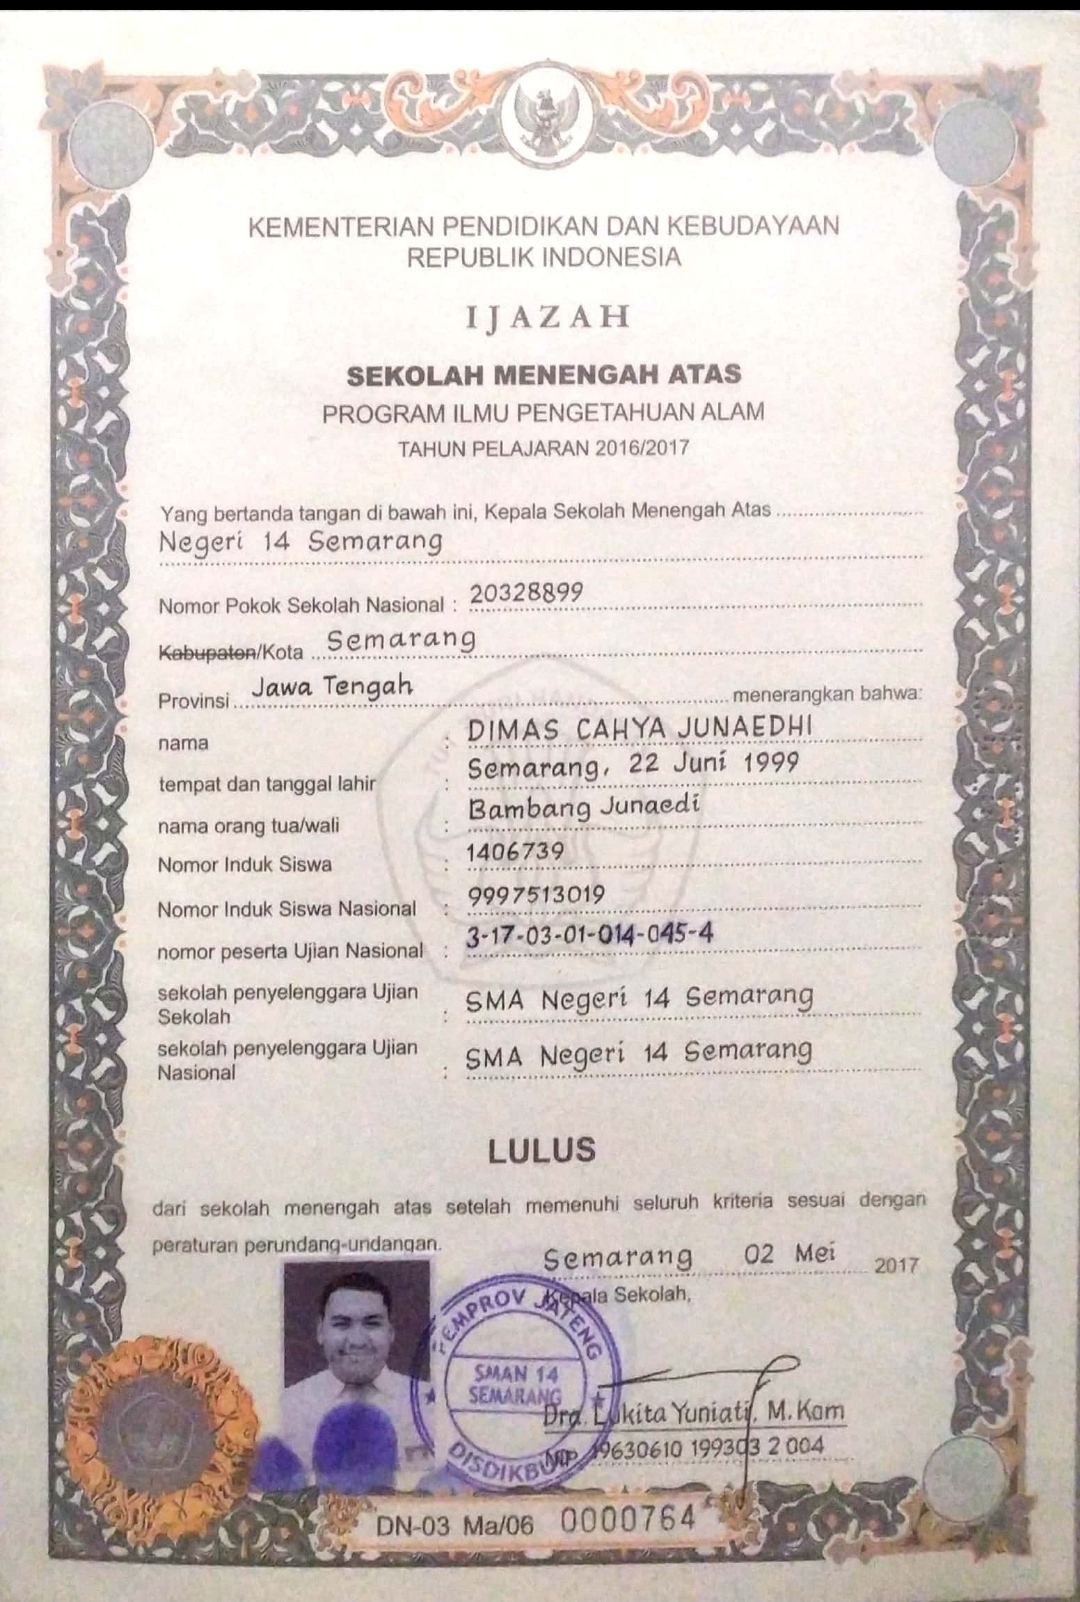 KEMENTERIAN PENDIDIKAN DAN KEBUDAYAAN
REPUBLIK INDONESIA
IJAZAH
SEKOLAH MENENGAH ATAS
PROGRAM ILMU PENGETAHUAN ALAM
TAHUN PELAJARAN 2016/2017
Yang bertanda tangan di bawah ini, Kepala Sekolah Menengah Atas
Negeri 14 Semarang
Nomor Pokok Sekolah Nasional : 20328899
Kabupaten/Kota Semarang
Provinsi Jawa Tengah menerangkan bahwa:
nama : DIMAS CAHYA JUNAEDHI
tempat dan tanggal lahir : Semarang, 22 Juni 1999
nama orang tua/wali : Bambang Junaedi
Nomor Induk Siswa : 1406739
Nomor Induk Siswa Nasional : 9997513019
nomor peserta Ujian Nasional : 3-17-03-01-014-045-4
sekolah penyelenggara Ujian
Sekolah : SMA Negeri 14 Semarang
sekolah penyelenggara Ujian
Nasional : SMA Negeri 14 Semarang
LULUS
dari sekolah menengah atas setelah memenuhi seluruh kriteria sesuai dengan
peraturan perundang-undangan.
Semarang 02 Mei 2017
Kepala Sekolah,
PEMPROV JATENG
SMAN 14
SEMARANG
DISDIKBUD
Dra. Lukita Yuniati, M.Kom
NIP 19630610 199303 2 004
DN-03 Ma/06 0000764